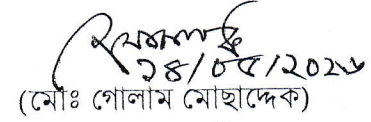 ১৪/০৫/২০২৬
(মোঃ গোলাম মোছাদ্দেক)